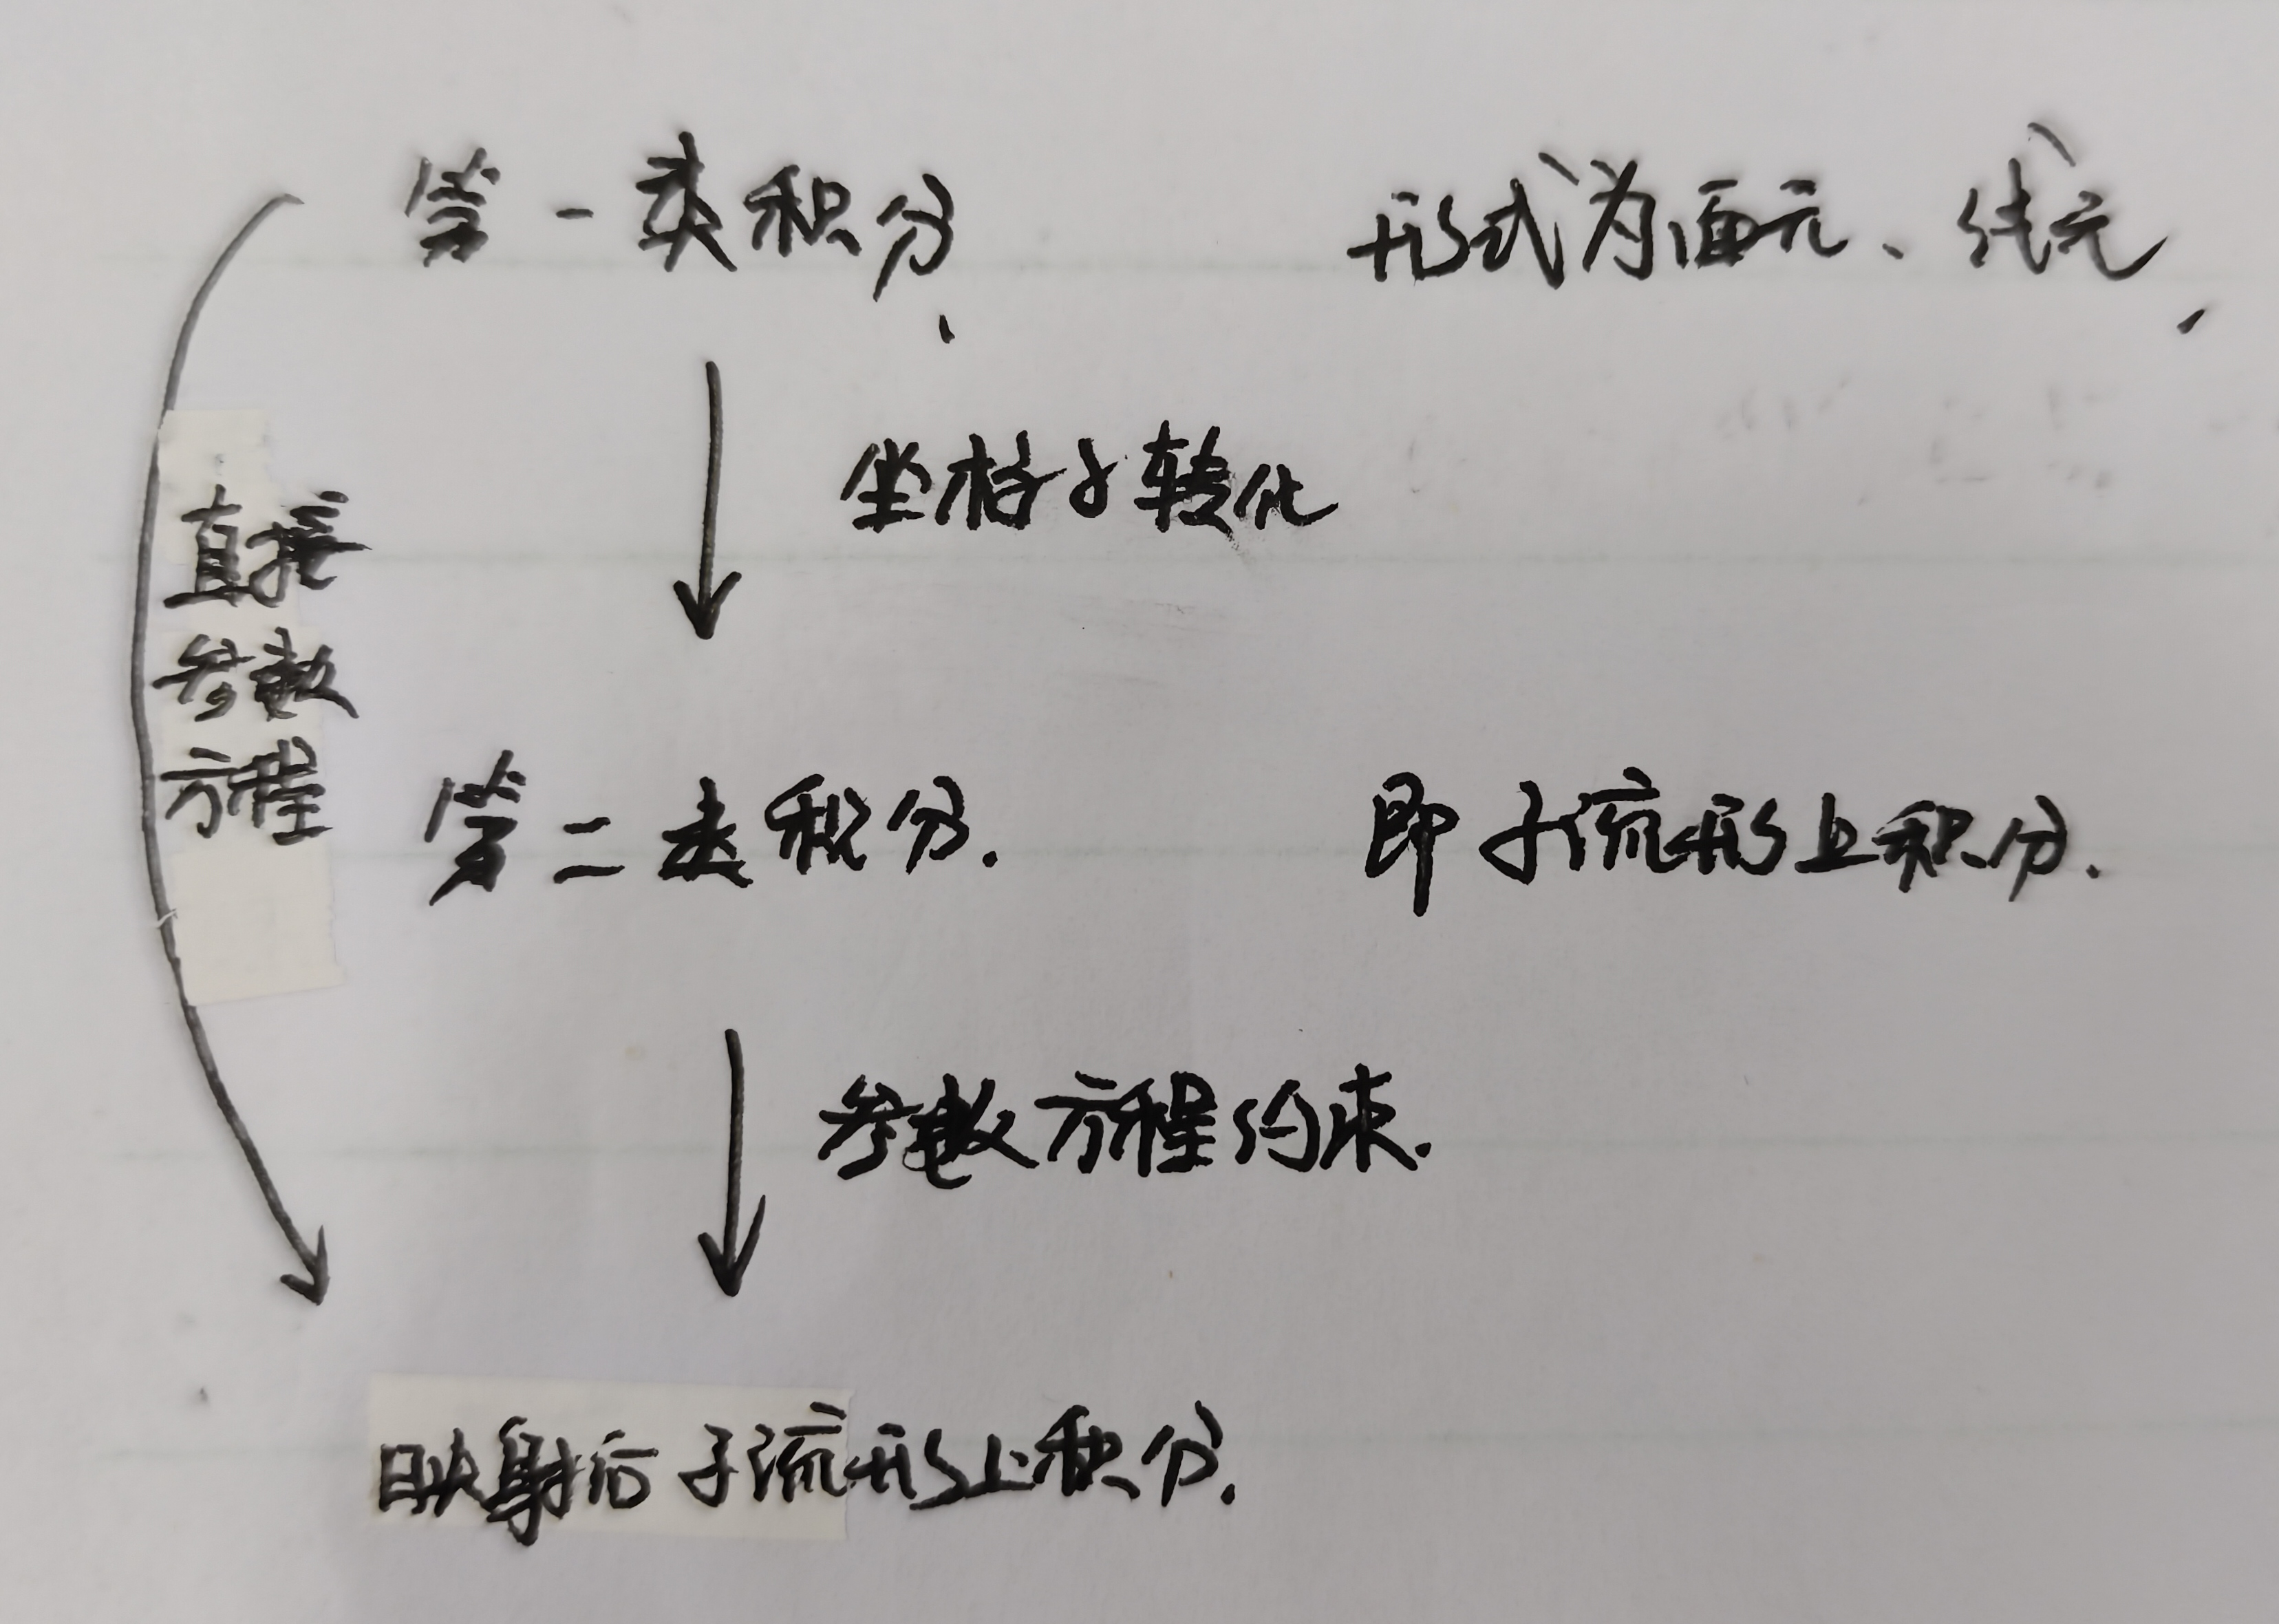 第一类积分、 形式为面元、线元,
坐标了转化
直接
参数
方程
第二类积分. 即子流形上积分.
参数方程约束.
映射后子流形上积分.